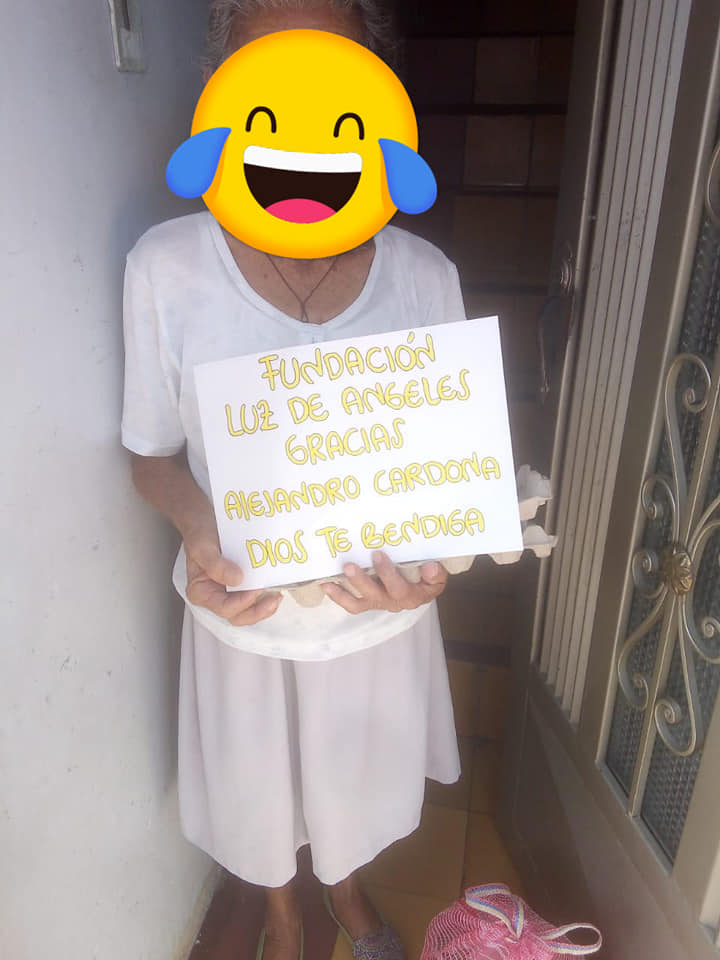 FUNDACIÓN
LUZ DE ANGELES
GRACIAS
ALEJANDRO CARDONA
DIOS TE BENDIGA